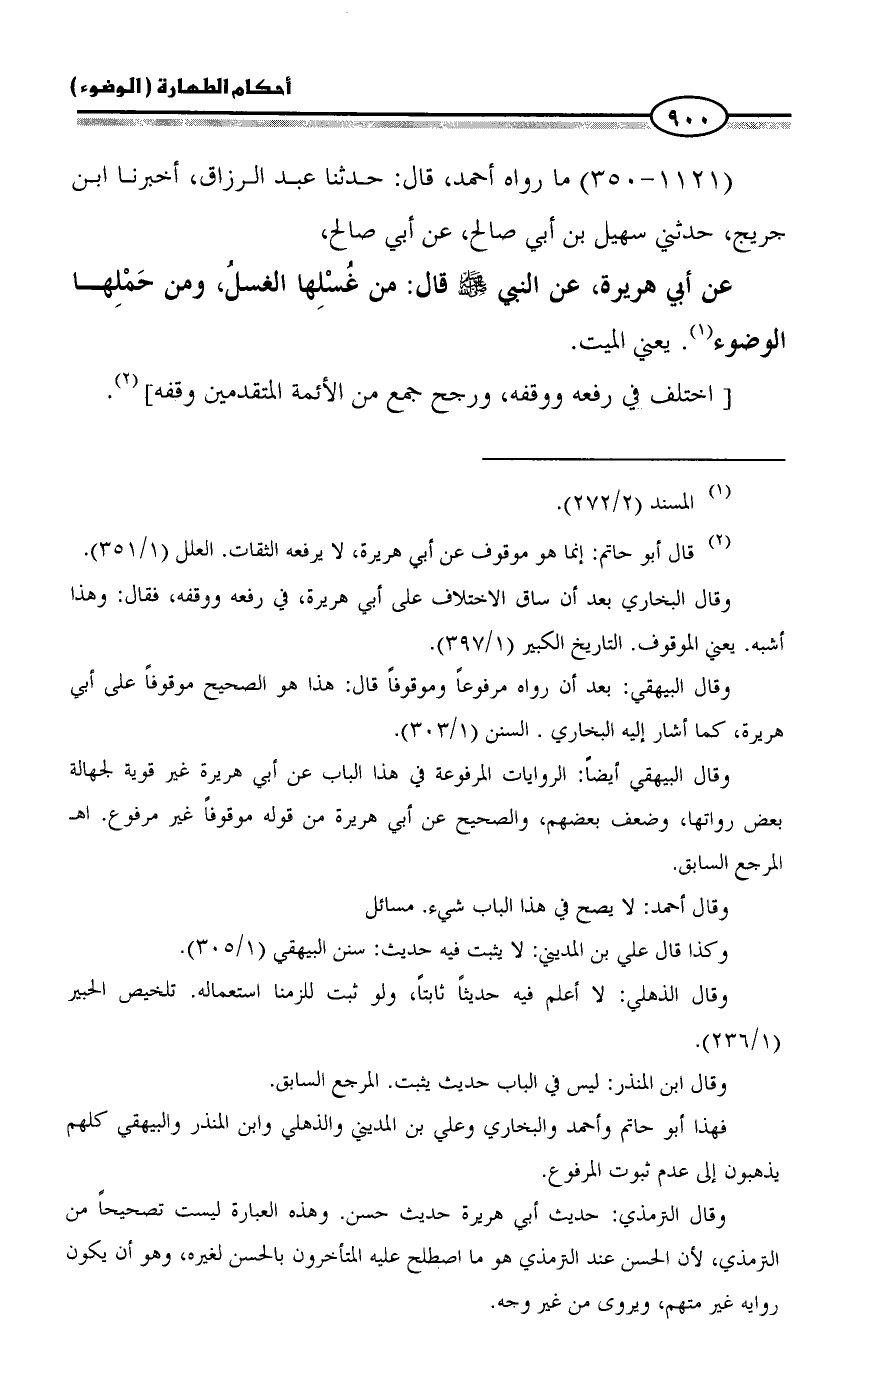 أحكام الطهارة (الوضوء)
٩٠٠
(١١٢١-٣٥٠) ما رواه أحمد، قال: حدثنا عبد الرزاق، أخبرنا ابن
جريج، حدثني سهيل بن أبي صالح، عن أبي صالح،
عن أبي هريرة، عن النبي ﷺ قال: من غُسْلِها الغسلُ، ومن حَمْلِها
الوضوء(١). يعني الميت.
[ اختلف في رفعه ووقفه، ورجح جمع من الأئمة المتقدمين وقفه] (٢).
(١) المسند (٢٧٢/٢).
(٢) قال أبو حاتم: إنما هو موقوف عن أبي هريرة، لا يرفعه الثقات. العلل (٣٥١/١).
وقال البخاري بعد أن ساق الاختلاف على أبي هريرة، في رفعه ووقفه، فقال: وهذا
أشبه. يعني الموقوف. التاريخ الكبير (٣٩٧/١).
وقال البيهقي: بعد أن رواه مرفوعاً وموقوفاً قال: هذا هو الصحيح موقوفاً على أبي
هريرة، كما أشار إليه البخاري . السنن (٣٠٣/١).
وقال البيهقي أيضاً: الروايات المرفوعة في هذا الباب عن أبي هريرة غير قوية لجهالة
بعض رواتها، وضعف بعضهم، والصحيح عن أبي هريرة من قوله موقوفاً غير مرفوع. اهـ
المرجع السابق.
وقال أحمد: لا يصح في هذا الباب شيء. مسائل
وكذا قال علي بن المديني: لا يثبت فيه حديث: سنن البيهقي (٣٠٥/١).
وقال الذهلي: لا أعلم فيه حديثاً ثابتاً، ولو ثبت للزمنا استعماله. تلخيص الحبير
(٢٣٦/١).
وقال ابن المنذر: ليس في الباب حديث يثبت. المرجع السابق.
فهذا أبو حاتم وأحمد والبخاري وعلي بن المديني والذهلي وابن المنذر والبيهقي كلهم
يذهبون إلى عدم ثبوت المرفوع.
وقال الترمذي: حديث أبي هريرة حديث حسن. وهذه العبارة ليست تصحيحاً من
الترمذي، لأن الحسن عند الترمذي هو ما اصطلح عليه المتأخرون بالحسن لغيره، وهو أن يكون
روايه غير متهم، ويروى من غير وجه.